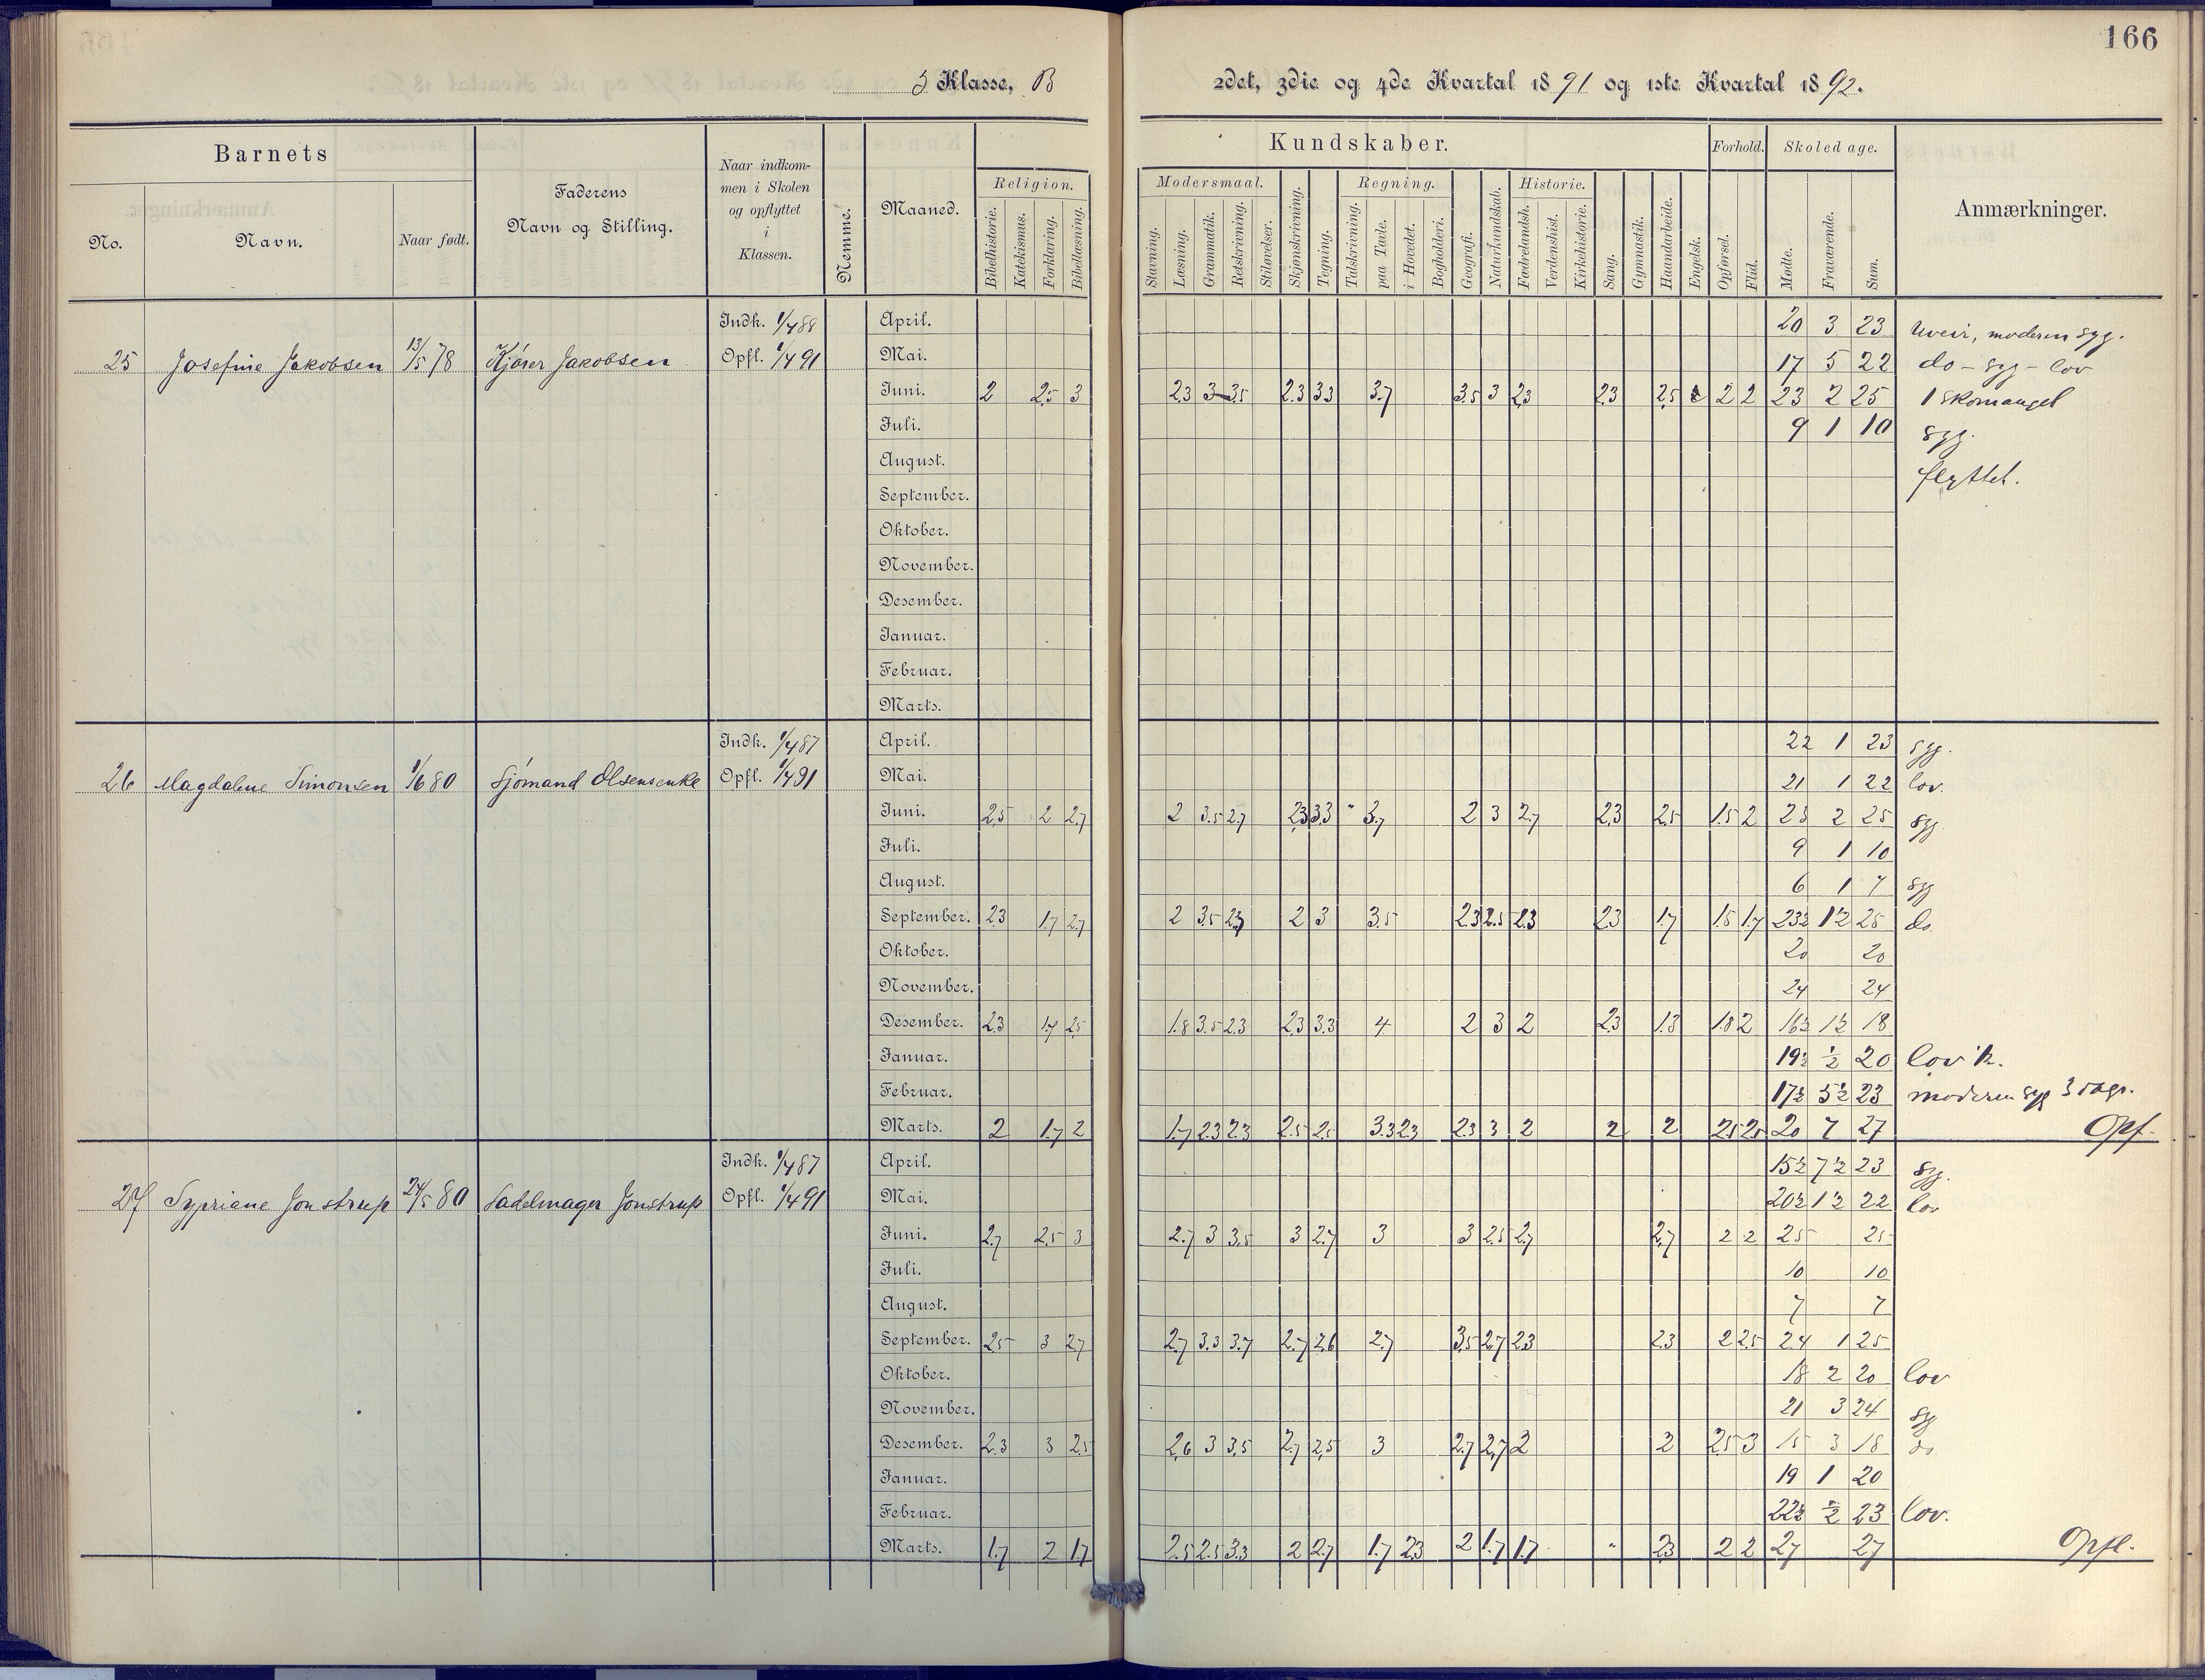 166
5 Klasse, B
2det, 3die og 4de Kvartal 1891 og 1ste Kvartal 1892.
Barnets
No.
Navn.
Naar født.
Faderens
Navn og Stilling.
Naar indkom-
men i Skolen
og opflyttet
i
Klassen.
Nemme.
Maaned.
Kundskaber.
Religion.
Bibelhistorie. Katekismus. Forklaring. Bibellæsning.
Modersmaal.
Stavning. Læsning. Grammatik. Retskrivning. Stiløvelser.
Skjønskrivning. Tegning.
Regning.
Talskrivning. paa Tavle. i Hovedet. Bogholderi.
Geografi. Naturkundskab.
Historie.
Fædrelandsh. Verdenshist. Kirkehistorie.
Sang. Gymnastik. Haandarbeide. Engelsk.
Forhold.
Opførsel. Flid.
Skoledage.
Mødte. Fraværende. Sum.
Anmærkninger.
25 Josefine Jakobsen 13/5 78 Kjører Jakobsen
Indk. 1/4 88
Opfl. 1/4 91
April. 20 3 23 Uveir, moderen syg.
Mai. 17 5 22 do - syg - lov
Juni. 2 2.5 3 2.3 3 3.5 2.3 3.3 3.7 3.5 3 2.3 2.3 2.5 2 2 23 2 25 1 skomangel
Juli. 9 1 10 syg.
August.
September. flyttet.
Oktober.
November.
Desember.
Januar.
Februar.
Marts.
26 Magdalene Simonsen 1/6 80 Sjømand Olsensenke
Indk. 1/4 87
Opfl. 1/4 91
April. 22 1 23 syg.
Mai. 21 1 22 lov.
Juni. 2.5 2 2.7 2 3.5 2.7 2.3 3.3 " 3.7 2 3 2.7 2.3 2.5 1.5 2 23 2 25 syg
Juli. 9 1 10
August. 6 1 7 syg
September. 2.3 1.7 2.7 2 3.5 2.3 2 3 3.5 2.3 2.5 2.3 2.3 1.7 1.5 1.7 23½ 1½ 25 do
Oktober. 20 20
November. 24 24
Desember. 2.3 1.7 2.5 1.8 3.5 2.3 2.3 3.3 4 2 3 2 2.3 1.3 1.8 2 16½ 1½ 18
Januar. 19½ ½ 20 lov
Februar. 17½ 5½ 23 moderen syg 3 dage.
Marts. 2 1.7 2 1.7 2.3 2.3 2.5 2.5 3.3 2.3 2.3 3 2 2 2 2.5 2.5 20 7 27 Opf.
27 Sypriane Jonstrup 24/5 80 Sadelmager Jonstrup
Indk. 1/4 87
Opfl. 1/4 91
April. 15½ 7½ 23 syg.
Mai. 20½ 1½ 22 lov
Juni. 2.7 2.5 3 2.7 3 3.5 3 2.7 3 3 2.5 2.7 2.7 2 2 25 25
Juli. 10 10
August. 7 7
September. 2.5 3 2.7 2.7 3.3 3.7 2.7 2.6 2.7 3.5 2.7 2.3 2.3 2 2.5 24 1 25
Oktober. 18 2 20 lov
November. 21 3 24 syg
Desember. 2.3 3 2.5 2.6 3 3.5 2.7 2.5 3 2.7 2.7 2 2 2.5 3 15 3 18 do
Januar. 19 1 20
Februar. 22½ ½ 23 lov.
Marts. 1.7 2 1.7 2.5 2.5 3.3 2 2.7 1.7 2.3 2 1.7 1.7 " 2.3 2 2 27 27 Opfl.